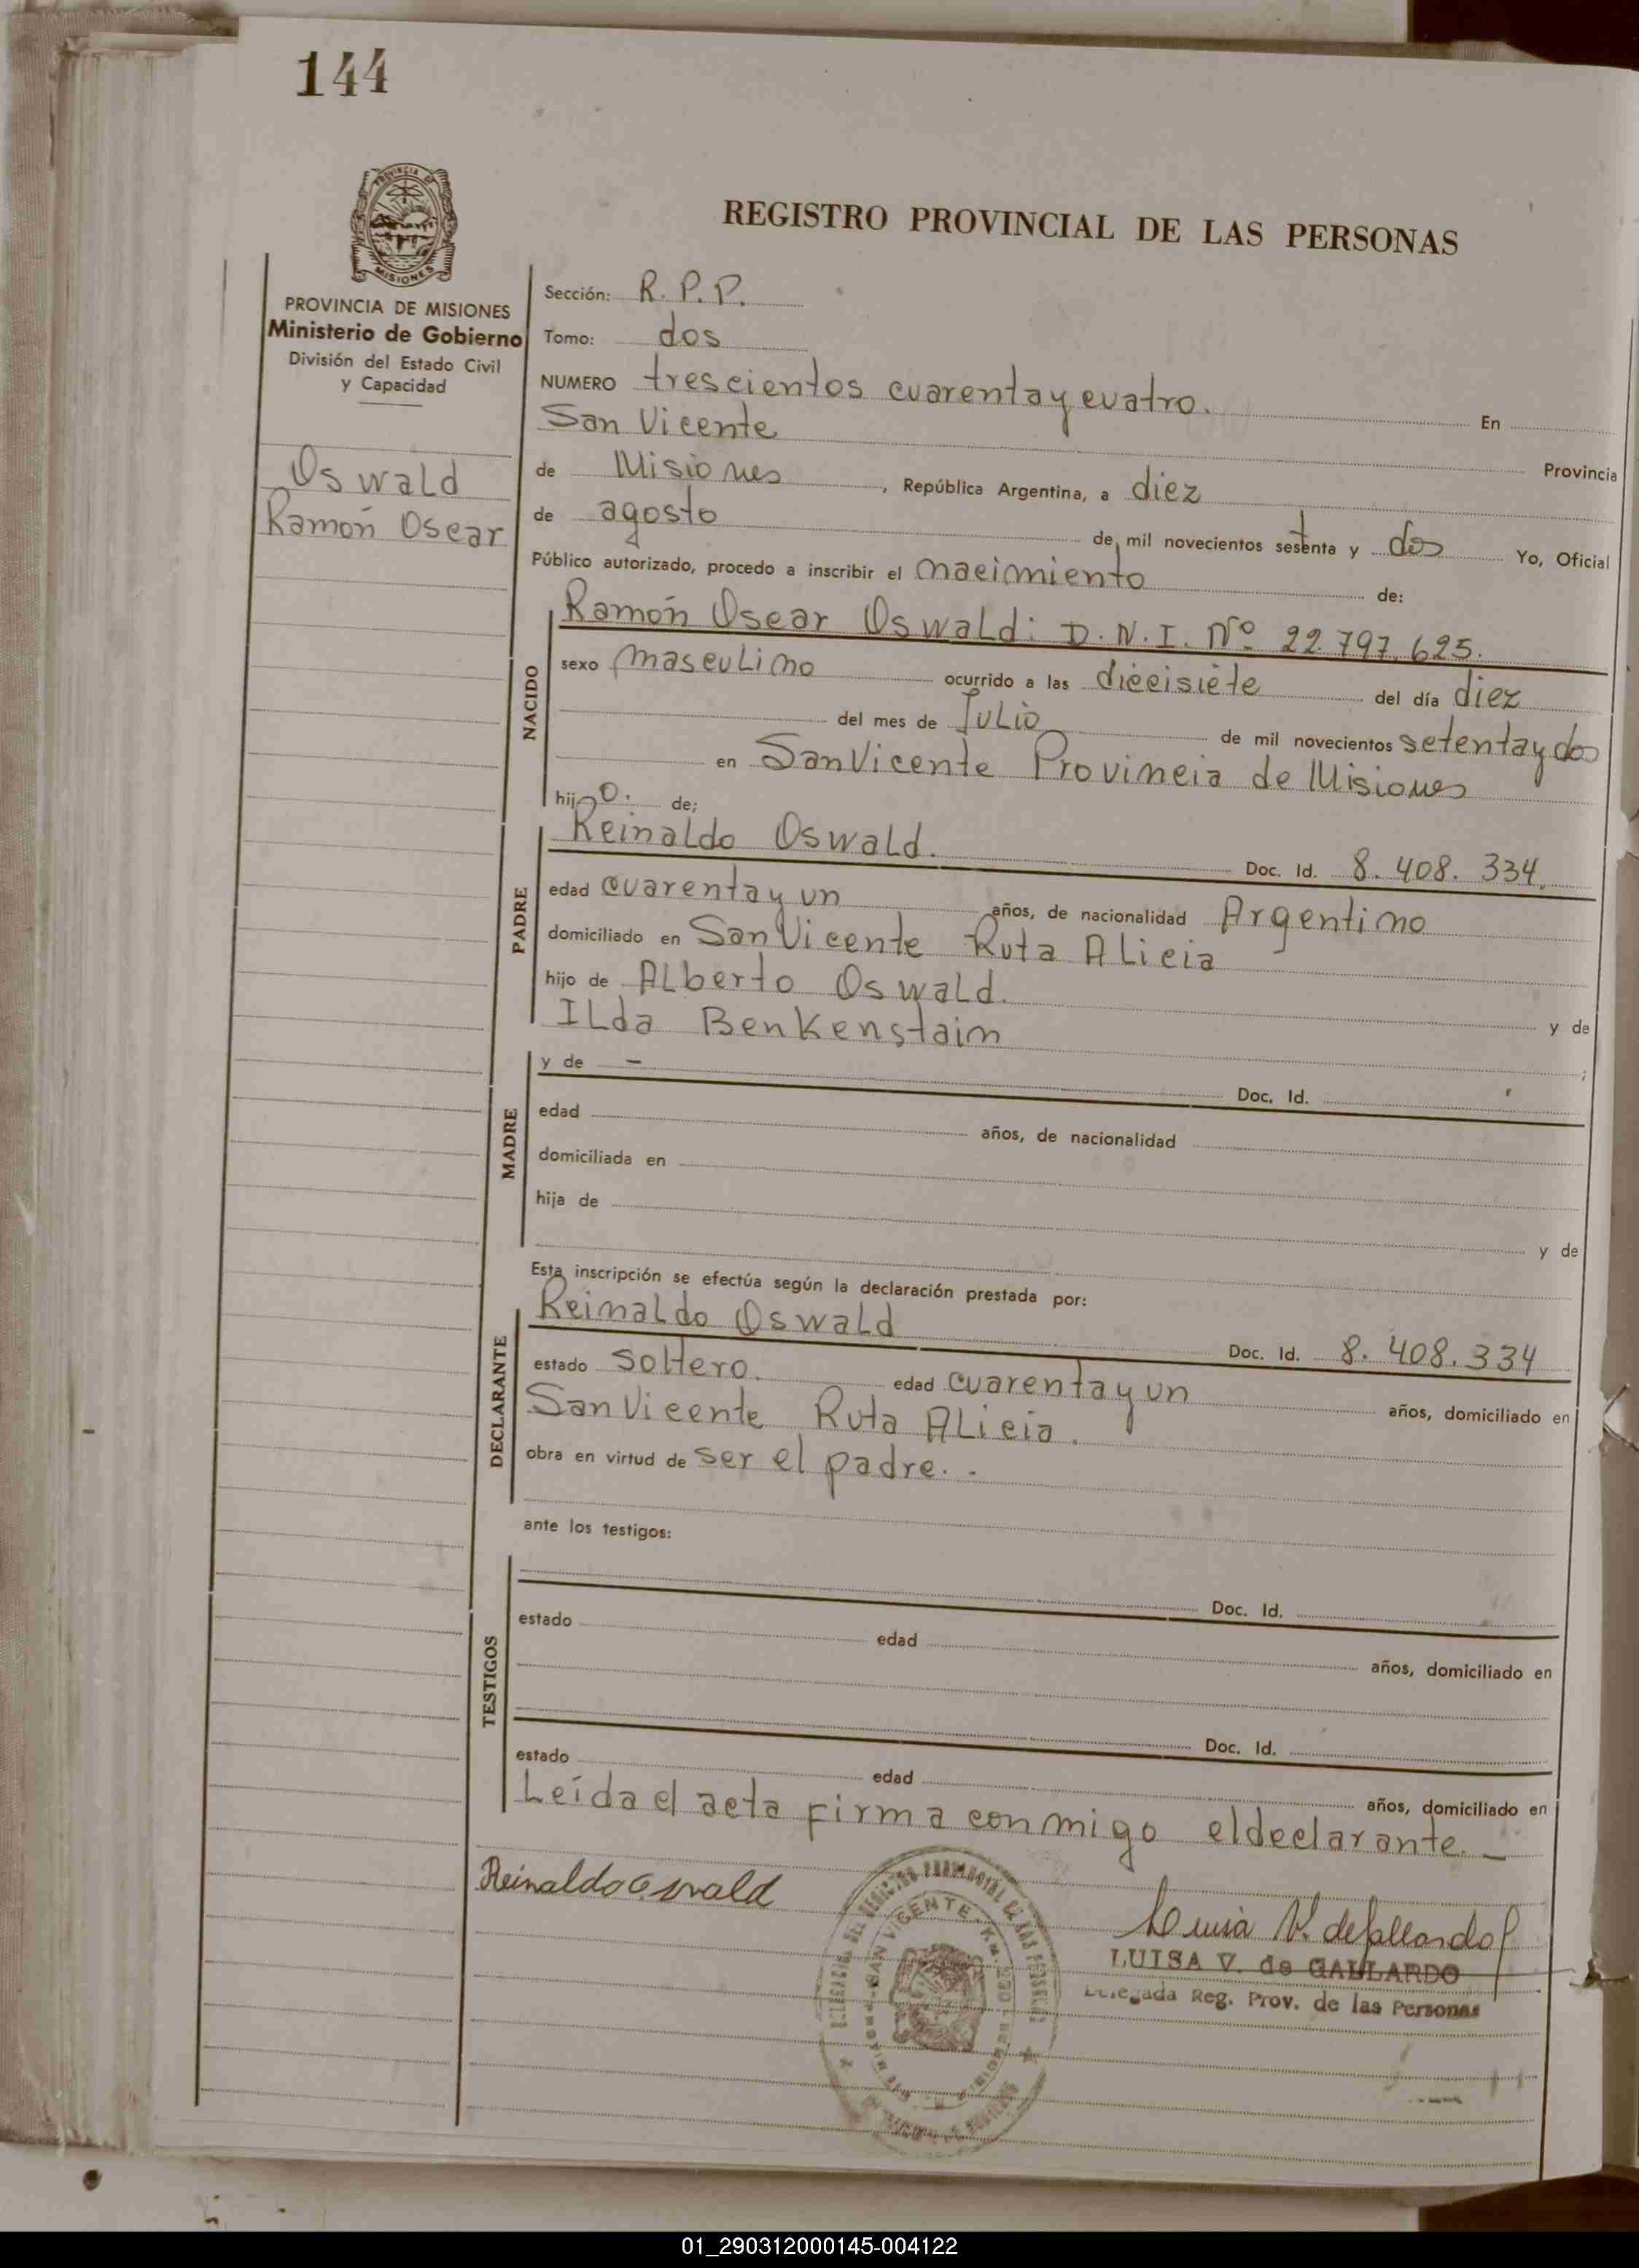 144
PROVINCIA DE
MISIONES
PROVINCIA DE MISIONES
Ministerio de Gobierno
División del Estado Civil
y Capacidad
Oswald
Ramón Oscar
REGISTRO PROVINCIAL DE LAS PERSONAS
Sección: R.P.P.
Tomo: dos
NUMERO trescientos cuarenta y cuatro. En
San Vicente Provincia
de Misiones, República Argentina, a diez
de agosto de mil novecientos setenta y dos Yo, Oficial
Público autorizado, procedo a inscribir el nacimiento de:
NACIDO
Ramón Oscar Oswald: D.N.I. Nº 22.797.625.
sexo masculino ocurrido a las diecisiete del día diez
del mes de Julio de mil novecientos setenta y dos
en San Vicente Provincia de Misiones
hijo. de;
PADRE
Reinaldo Oswald. Doc. Id. 8.408.334.
edad cuarenta y un años, de nacionalidad Argentino
domiciliado en San Vicente Ruta Alicia
hijo de Alberto Oswald. y de
Ilda Benkenstain ;
MADRE
y de — Doc. Id.
edad años, de nacionalidad
domiciliada en
hija de
y de
Esta inscripción se efectúa según la declaración prestada por:
DECLARANTE
Reinaldo Oswald Doc. Id. 8.408.334
estado soltero. edad cuarenta y un años, domiciliado en
San Vicente Ruta Alicia.
obra en virtud de ser el padre. -
ante los testigos:
TESTIGOS
Doc. Id.
estado edad años, domiciliado en
Doc. Id.
estado edad años, domiciliado en
Leída el acta firma conmigo el declarante. —
Reinaldo Oswald
Luisa V. de Gallardo
LUISA V. de GALLARDO
Delegada Reg. Prov. de las Personas
DEL REGISTRO PROVINCIAL DE LAS PERSONAS
SAN VICENTE
01_290312000145-004122